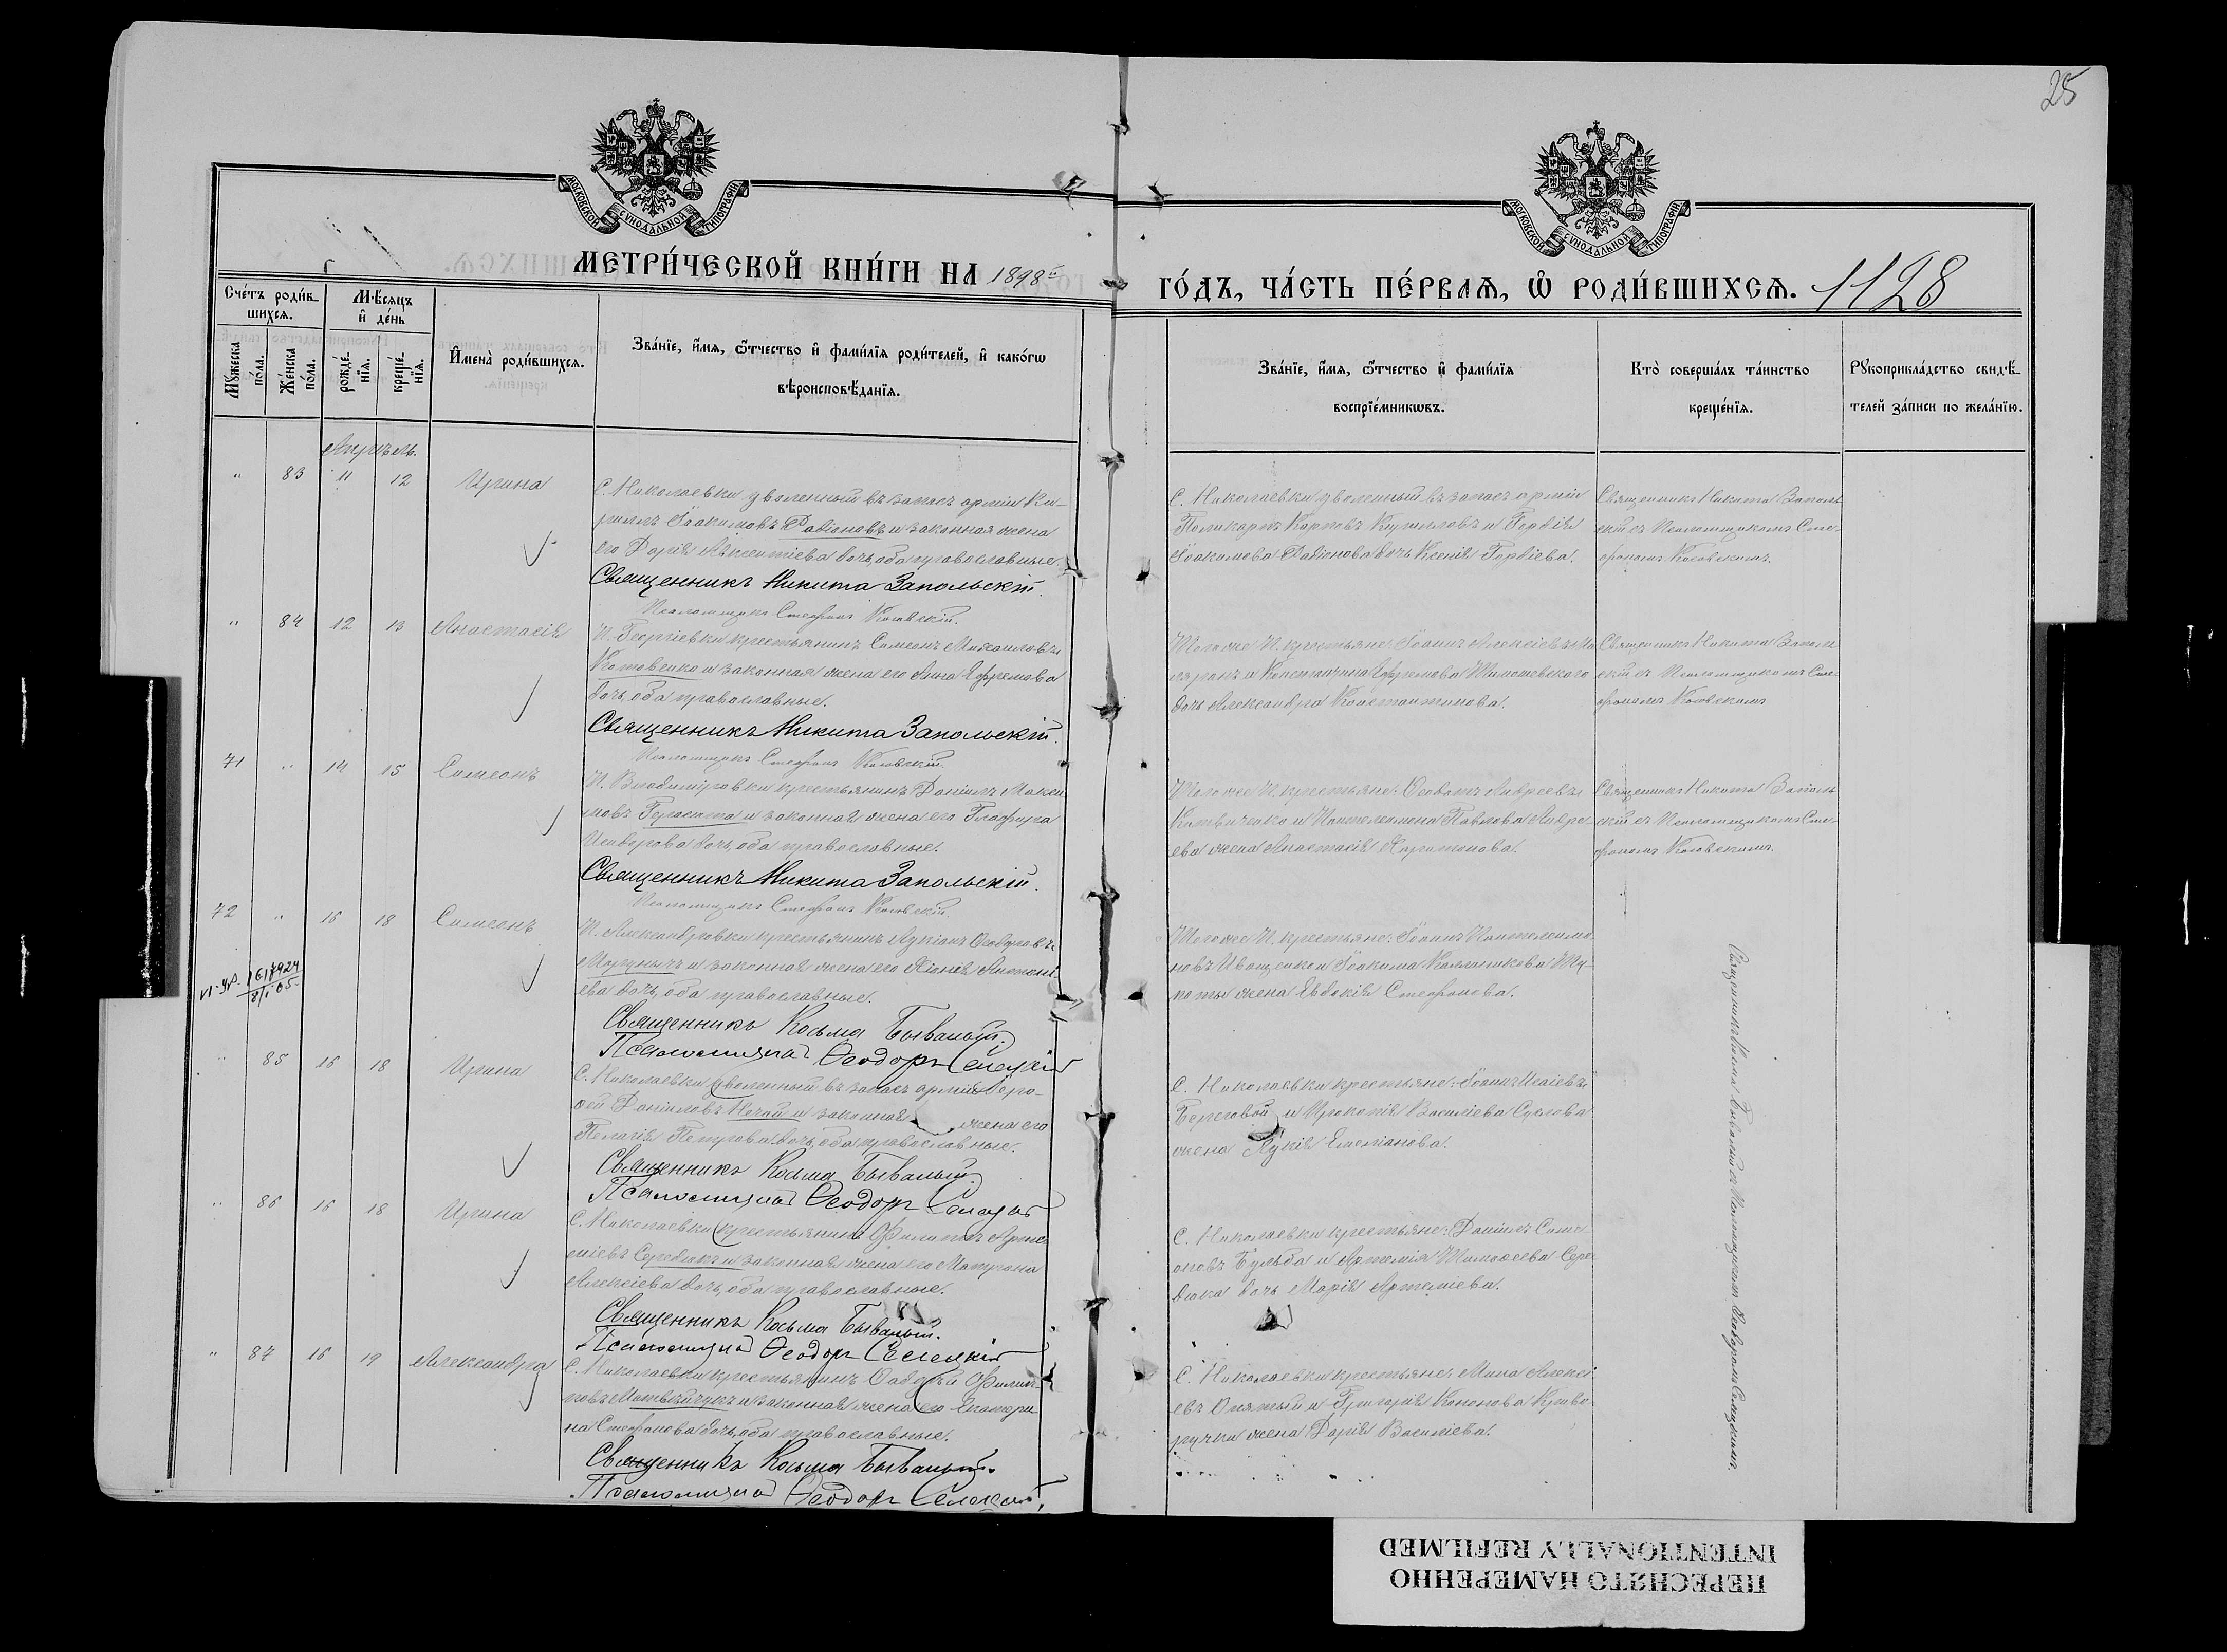 25
МОСКОВСКОЙ СѴНОДАЛЬНОЙ ТИПОГРАФІИ
МОСКОВСКОЙ СѴНОДАЛЬНОЙ ТИПОГРАФІИ
МЕТРИ́ЧЕСКОЙ КНИ́ГИ НА 1898й
ГО́ДЪ, ЧА́СТЬ ПЕ́РВАѦ, Ѽ РОДИ́ВШИХСѦ. 1128
Сче́тъ роди́в-
шихсѧ.
Мꙋ́жеска по́ла.
Же́нска по́ла.
Мѣ́сѧцъ
и҆ де́нь
рожде́-
нїѧ.
креще́-
нїѧ.
И҆мена̀ роди́вшихсѧ.
Зва́нїе, и҆́мѧ, ѻ҆́тчество и҆ фами́лїѧ роди́телей, и҆ како́гѡ
вѣроисповѣ́данїѧ.
Зва́нїе, и҆́мѧ, ѻ҆́тчество и҆ фами́лїѧ
воспрїе́мникѡвъ.
Кто̀ соверша́лъ та́инство
креще́нїѧ.
Рꙋкоприкла́дство свидѣ́-
телей за́писи по жела́нїю.
Апрѣль.
" 83 11 12 Ирина
С. Николаевки уволенный въ запасъ арміи Ки-
риллъ Іоакимовъ Радіоновъ и законная жена
его Дарія Авксентіева дочь, оба православные.
Священникъ Никита Запольскій.
Псаломщикъ Стефанъ Косовскій.
С. Николаевки уволенный въ запасъ арміи
Поликарпъ Карповъ Кирилловъ и Гордія
Іоакимова Радіонова дочь Ксенія Гордіева.
Священникъ Никита Заполь-
скій съ Псаломщикомъ Сте-
фаномъ Косовскимъ.
" 84 12 13 Анастасія
П. Георгіевки крестьянинъ Симеонъ Михаиловъ
Котовенко и законная жена его Анна Ефремова
дочь, оба православные.
Священникъ Никита Запольскій.
Псаломщикъ Стефанъ Косовскій.
Того же П. крестьяне: Іоаннъ Алексіевъ
и Константина Ефремова
дочь Александра Константинова.
Священникъ Никита Заполь-
скій съ Псаломщикомъ Сте-
фаномъ Косовскимъ
71 " 14 15 Симеонъ
П. Владиміровки крестьянинъ Даніилъ Макси-
мовъ Герасита и законная жена его Глафира
Исидорова дочь, оба православные.
Священникъ Никита Запольскій.
Псаломщикъ Стефанъ Косовскій.
Того же П. крестьяне: Андреевъ
и Пантелеимона Павлова Андре-
ева жена Анастасія Харитонова.
Священникъ Никита Заполь-
скій съ Псаломщикомъ Сте-
фаномъ Косовскимъ.
72 " 16 18 Симеонъ
1617924
8/I 05
П. Александровки крестьянинъ Лукіанъ Ѳеодоровъ
и законная жена его Хіонія Антоні-
ева дочь, оба православные.
Священникъ Косьма Бывалый.
Псаломщикъ Ѳеодоръ Селецкій
Того же П. крестьяне: Іоаннъ Пантелеимо-
новъ Иващенко и Іоакима Каллиникова
жена Евдокія Стефанова.
Священникъ Косьма Бывалый съ Псаломщикомъ Ѳеодоромъ Селецкимъ.
" 85 16 18 Ирина
С. Николаевки уволенный въ запасъ арміи Іеро-
ѳей Даніиловъ Нечай и законная жена его
Пелагія Петрова дочь, оба православные.
Священникъ Косьма Бывалый.
Псаломщикъ Ѳеодоръ Селецкій
С. Николаевки крестьяне: Іоаннъ Исаіевъ
Береговой и Прокопія Василіева Суслова
жена Лукія Емеліанова.
" 86 16 18 Ирина
С. Николаевки крестьянинъ Филиппъ Арте-
міевъ Середюкъ и законная жена его Матрона
Алексіева дочь, оба православные.
Священникъ Косьма Бывалый.
Псаломщикъ Ѳеодоръ Селецкій
С. Николаевки крестьяне: Даніилъ Симе-
оновъ Бульба и Артемія Тимоѳеева Сере-
дюка дочь Марія Артеміева.
" 87 16 19 Александра
С. Николаевки крестьянинъ Ѳаддей Филип-
повъ Матвейчукъ и законная жена его Екатери-
на Стефанова дочь, оба православные.
Священникъ Косьма Бывалый.
Псаломщикъ Ѳеодоръ Селецкій.
С. Николаевки крестьяне: Мина Алексі-
евъ Опятый и Григорія Кононова Криво-
ручки жена Дарія Василіева.
ПЕРЕСНЯТО НАМЕРЕННО
INTENTIONALLY REFILMED